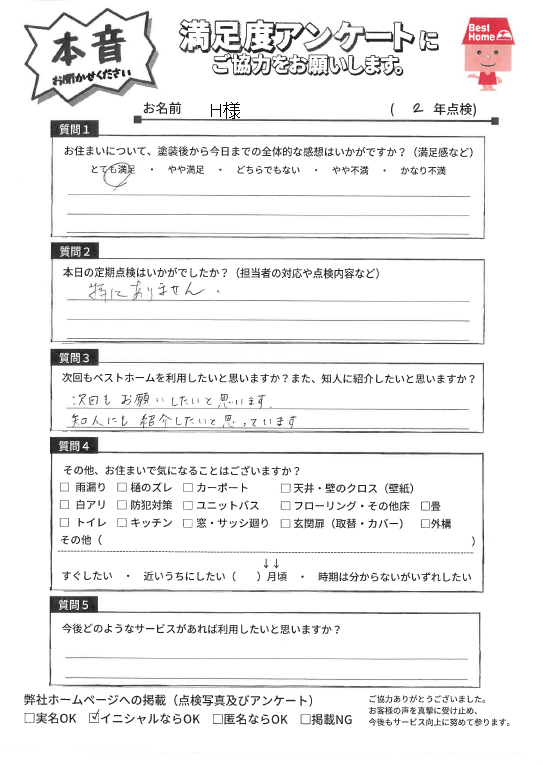 本音
お聞かせください
満足度アンケートに
ご協力をお願いします。
Best Home
お名前 H様 ( 2 年点検)
質問1
お住まいについて、塗装後から今日までの全体的な感想はいかがですか?(満足感など)
とても満足 ・ やや満足 ・ どちらでもない ・ やや不満 ・ かなり不満
質問2
本日の定期点検はいかがでしたか?(担当者の対応や点検内容など)
特にありません.
質問3
次回もベストホームを利用したいと思いますか?また、知人に紹介したいと思いますか?
次回もお願いしたいと思います.
知人にも紹介したいと思っています
質問4
その他、お住まいで気になることはございますか?
□ 雨漏り □ 樋のズレ □ カーポート □ 天井・壁のクロス(壁紙)
□ 白アリ □ 防犯対策 □ ユニットバス □ フローリング・その他床 □畳
□ トイレ □ キッチン □ 窓・サッシ廻り □ 玄関扉(取替・カバー) □外構
その他( )
↓↓
すぐしたい ・ 近いうちにしたい( )月頃 ・ 時期は分からないがいずれしたい
質問5
今後どのようなサービスがあれば利用したいと思いますか?
弊社ホームページへの掲載(点検写真及びアンケート)
□実名OK ☑イニシャルならOK □匿名ならOK □掲載NG
ご協力ありがとうございました。
お客様の声を真摯に受け止め、
今後もサービス向上に努めて参ります。